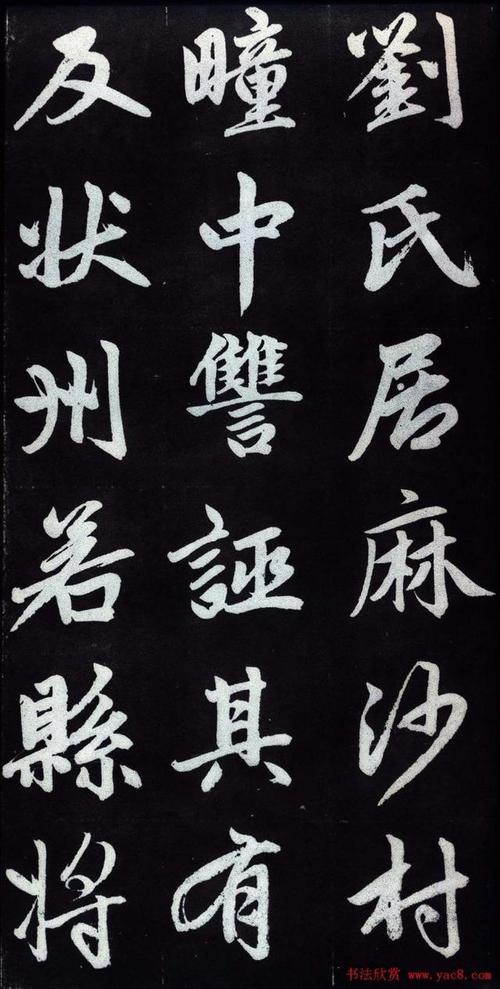 劉氏居麻沙村
疃中讐誣其有
反狀州若縣將
书法欣赏 www.yac8.com